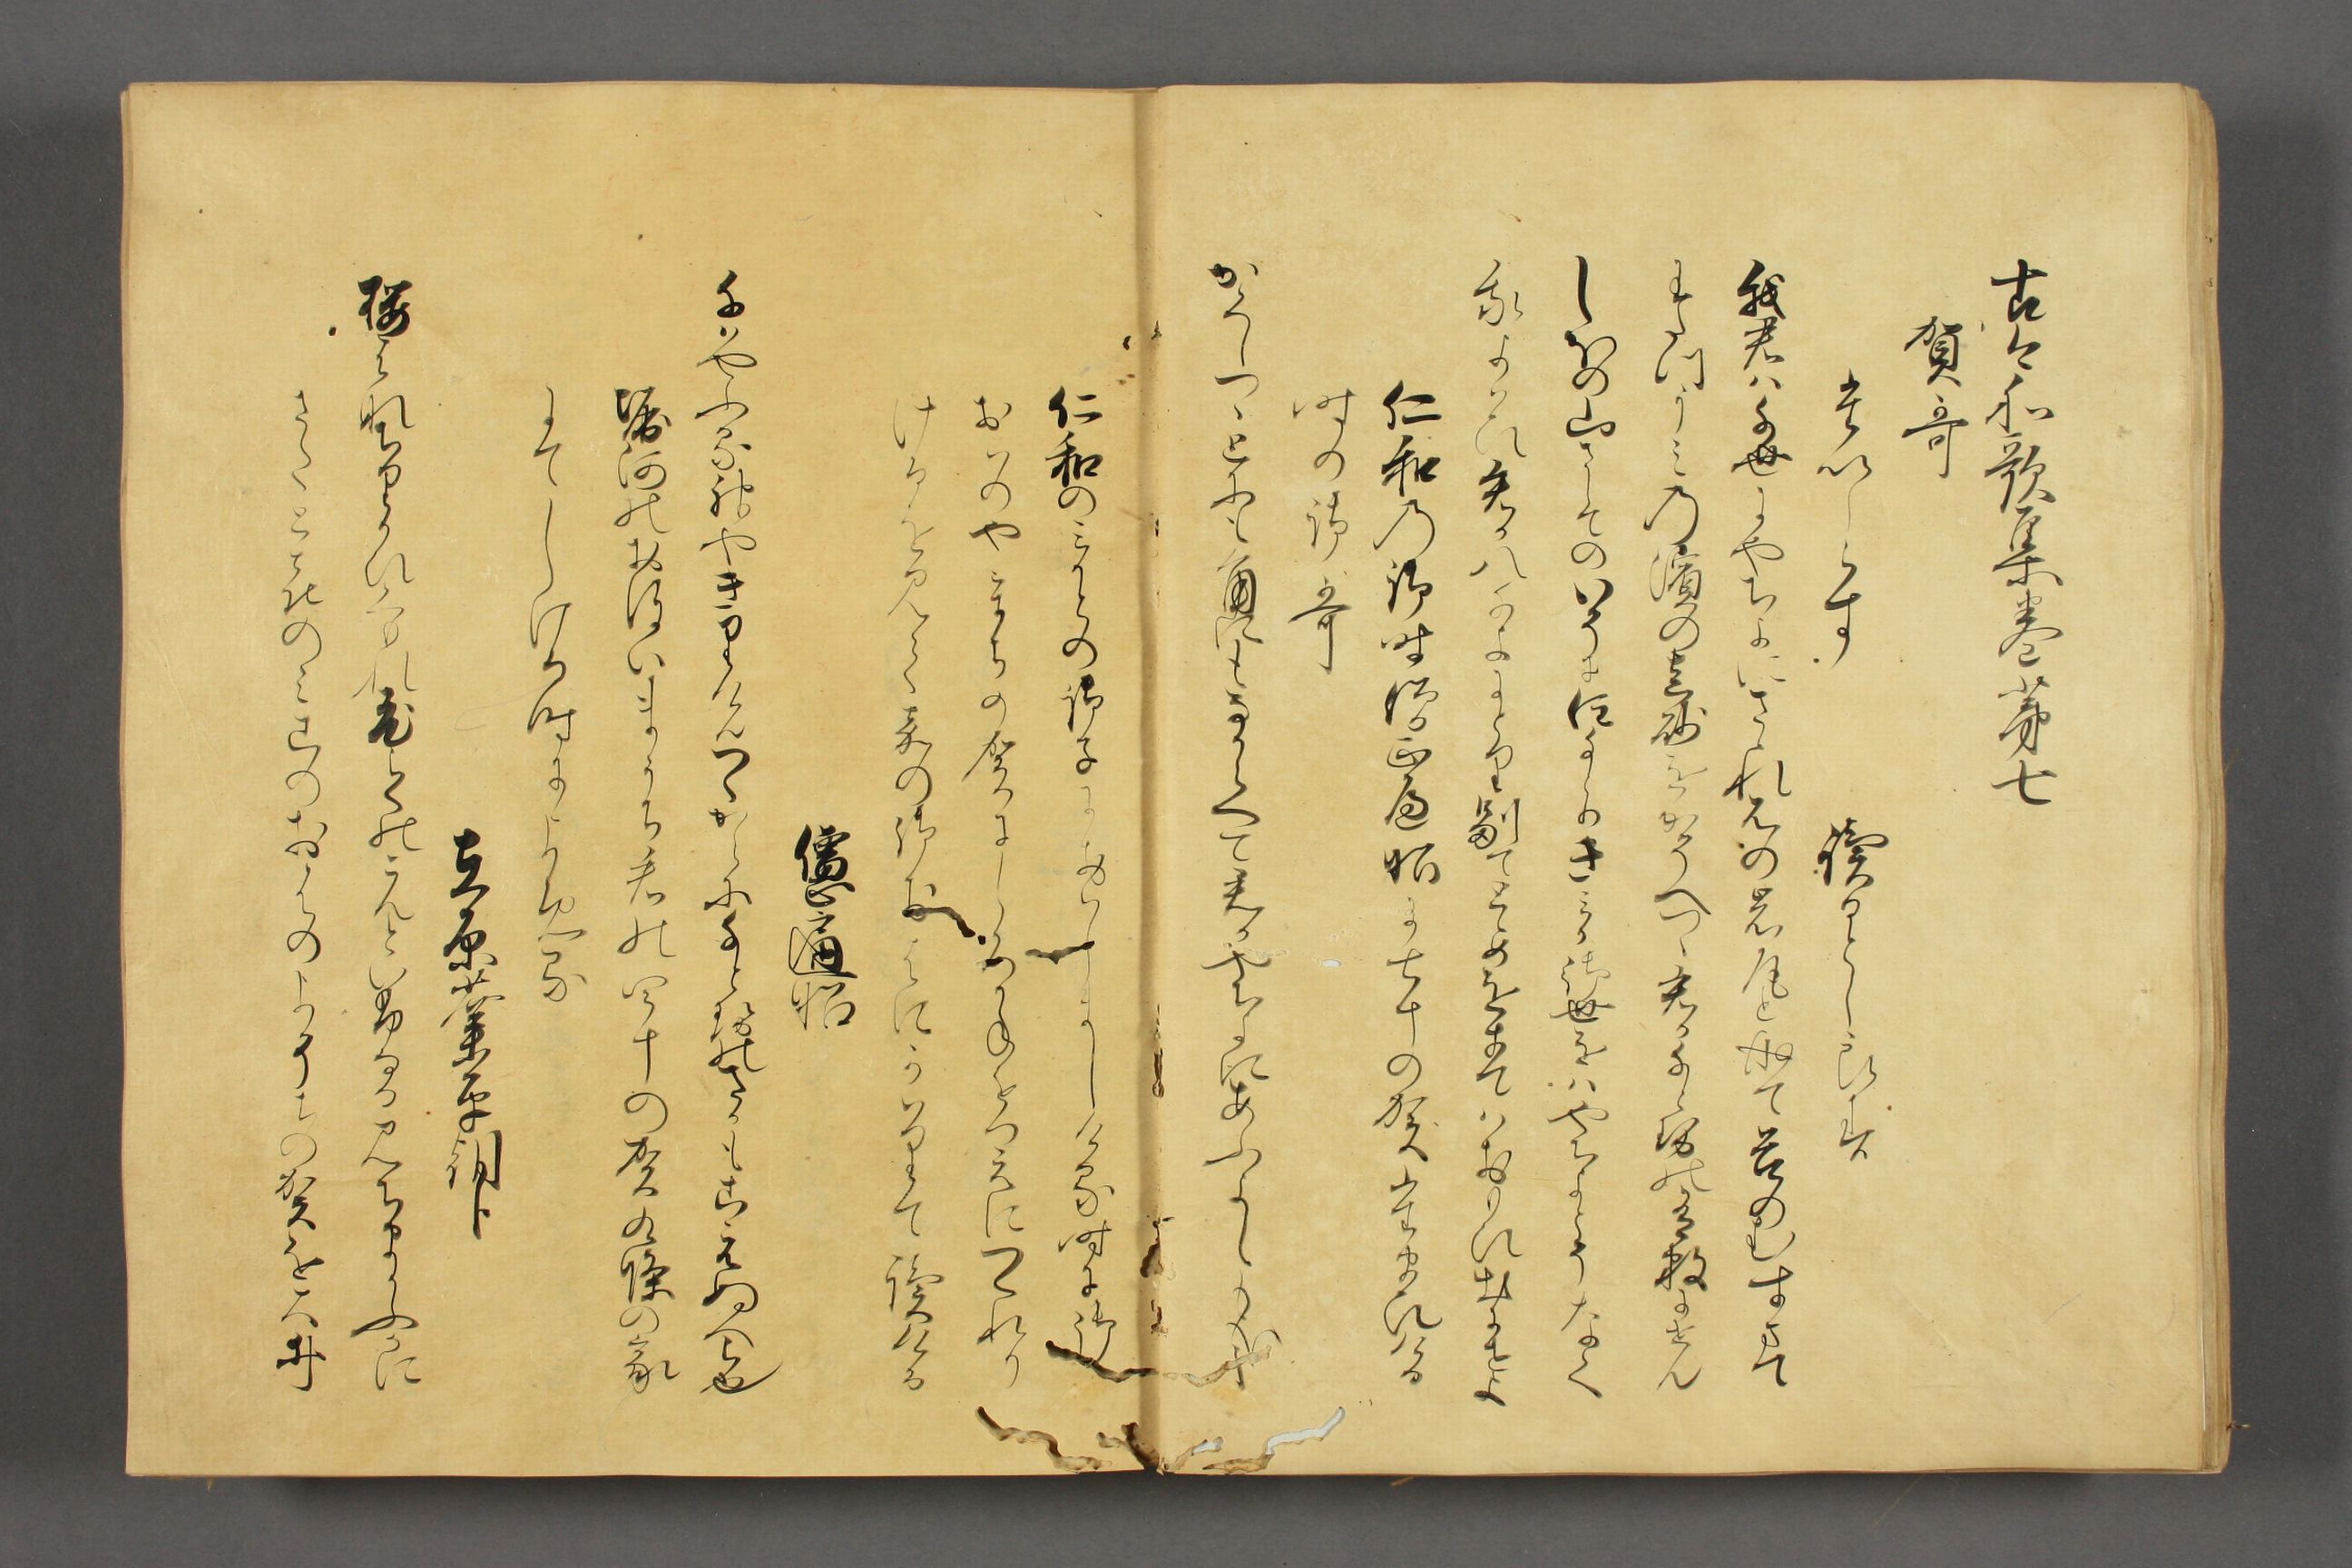 古今和歌集巻第七
賀哥
題しらす　讀人しらす
我君は千世にやちよにさゝれ石の岩尾と成て苔のむすまて
わたつうみの濱の真砂をかそへつゝ君か千とせの有数にせん
しほの山さしての いそに住千とりきみか御世をはやちよとそなく
我よはひ君か八千よにとり副てとゝめをきてはおもひ出にせよ
仁和乃御時僧正遍昭に七十の賀給ける
時の御哥
かくしつゝとにもかくにもなからへて君かやちよにあふよしもか那
仁和のみかとの御子におはしましける時に御
おはのやそちの賀にしろかねをつえにつくれり
けるを見てかの御おはにかはりて讀ける
僧正遍昭
千はやふる神やきりけんつくからに千とせのさかもこえぬへら也
堀河のおほいまうち君の四十の賀九條の家
にてしける時によめる
在原業平朝臣
桜はなちりかひくもれ老らくのこんといふなる道まかふかに
さたときのみこのおはのよそちの賀を大井